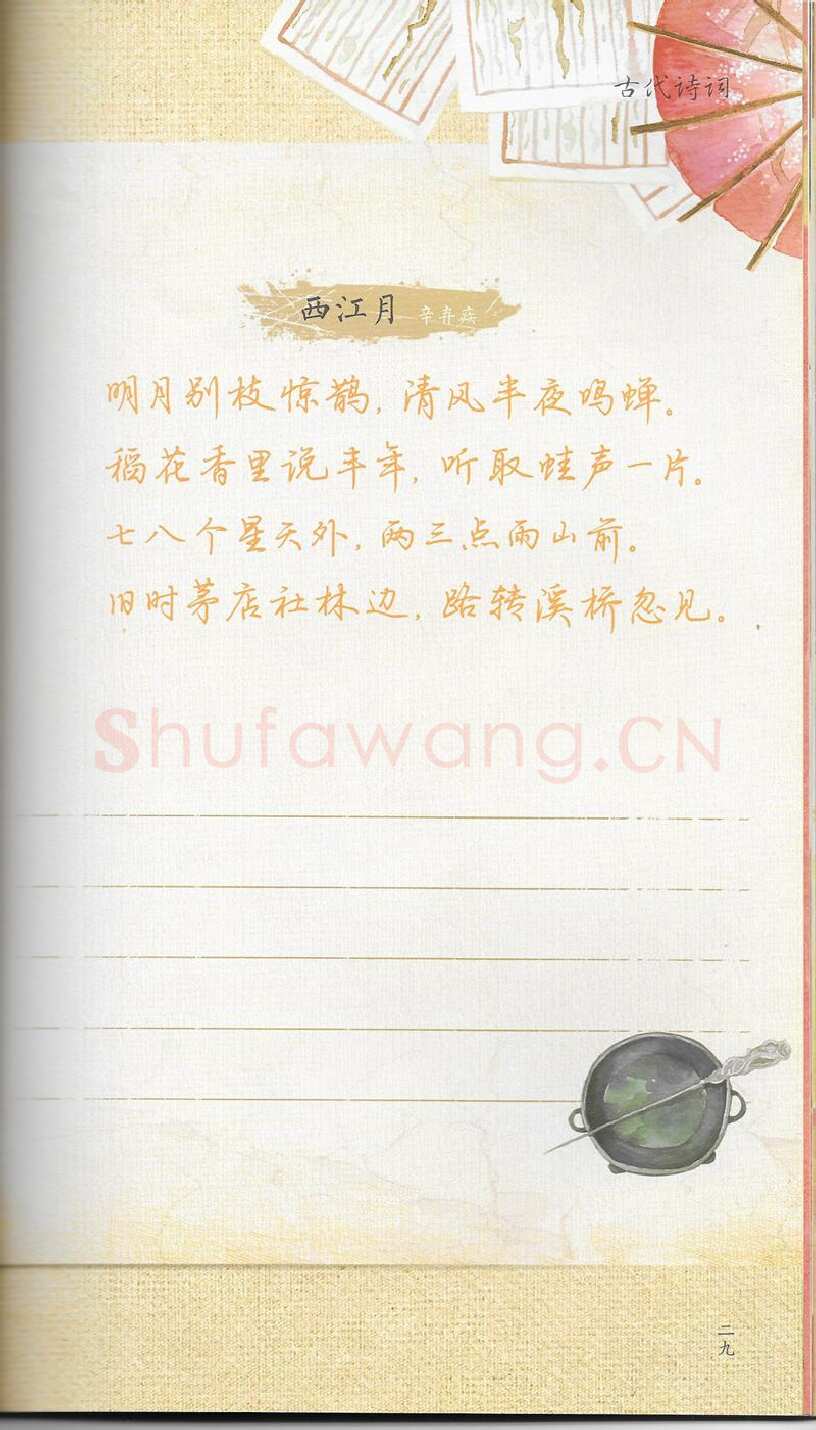 古代诗词
西江月 辛弃疾
明月别枝惊鹊,清风半夜鸣蝉。
稻花香里说丰年,听取蛙声一片。
七八个星天外,两三点雨山前。
旧时茅店社林边,路转溪桥忽见。
Shufawang.CN
二九